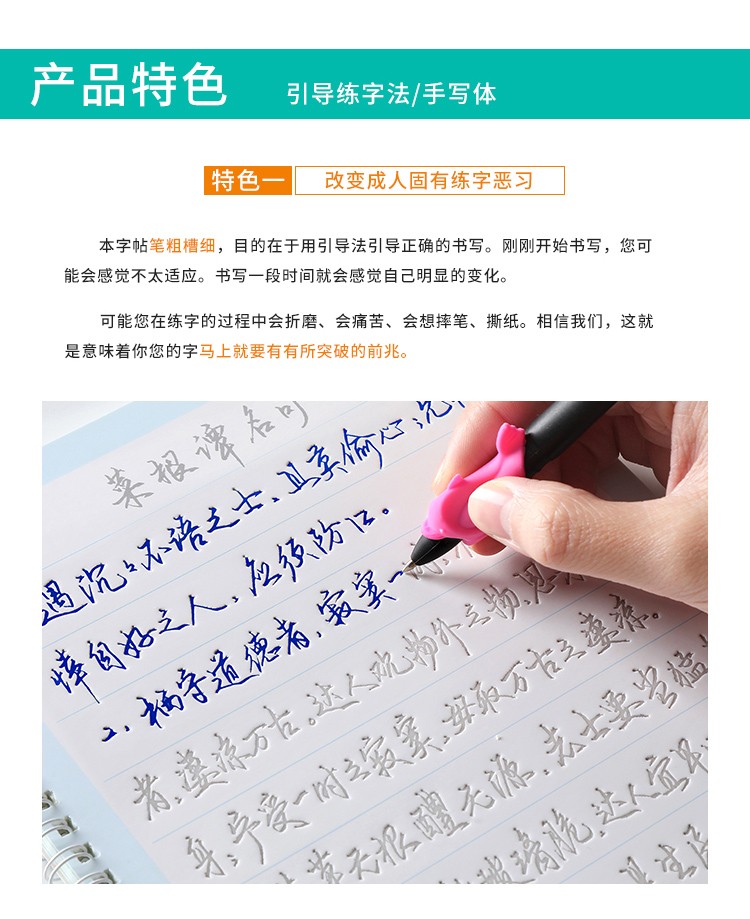 产品特色
引导练字法/手写体
特色一
改变成人固有练字恶习
本字帖笔粗槽细，目的在于用引导法引导正确的书写。刚刚开始书写，您可
能会感觉不太适应。书写一段时间就会感觉自己明显的变化。
可能您在练字的过程中会折磨、会痛苦、会想摔笔、撕纸。相信我们，这就
是意味着你您的字马上就要有有所突破的前兆。
菜根谭名句
遇沉沉不语之士，且莫偷心；见
悻自好之人，应须防口。
2、栖守道德者，寂寞一
者，凄凉万古。达人观物外之物，思
身；宁受一时之寂寞，毋取万古之凄凉。